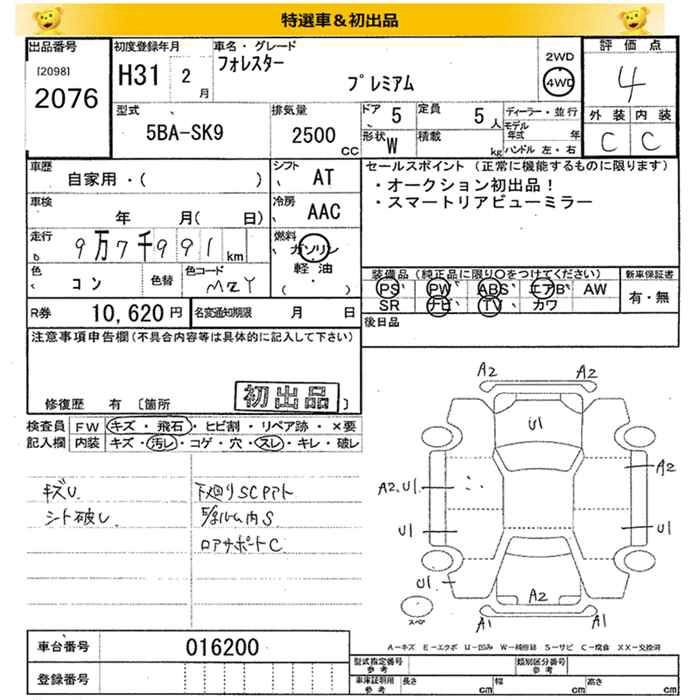 特選車＆初出品
出品番号 初度登録年月 車名・グレード 評価点
[2098] フォレスター 2WD
2076 H31 2月 プレミアム 4WD 4
型式 排気量 ドア 5 定員 5人 ディーラー・並行 外装 内装
5BA-SK9 2500cc 形状 W 積載 kg モデル年式 年 C C
ハンドル 左・右
車歴 シフト セールスポイント（正常に機能するものに限ります）
自家用・( ) AT ・オークション初出品！
車検 冷房 ・スマートリアビューミラー
年 月( 日) AAC
走行 燃料
9万7千991km ガソリン
色 色替 色コード 軽油 装備品（純正品に限り○をつけてください） 新車保証書
コン MZY (・) PS PW ABS エアB AW 有・無
R券 10,620円 名変通知期限 月 日 SR ナビ TV カワ
注意事項申告欄（不具合内容等は具体的に記入して下さい） 後日品
修復歴 有 〔箇所 初出品 〕
検査員 FW キズ・飛石・ヒビ割・リペア跡・×要
記入欄 内装 キズ・汚レ・コゲ・穴・スレ・キレ・破レ
キズU 下廻りSCアト
シート破レ
ロアサポートC
A2 A2
U1
A2
A2.U1
U1 U1
U1
A2
A1 A1
スペア
A−キズ E−エクボ U−凹み W−補修跡 S−サビ C−腐食 XX−交換済
車台番号 016200
登録番号
型式指定番号 参考 類別区分番号 参考
車庫証明用 参考 長さ cm 幅 cm 高さ cm